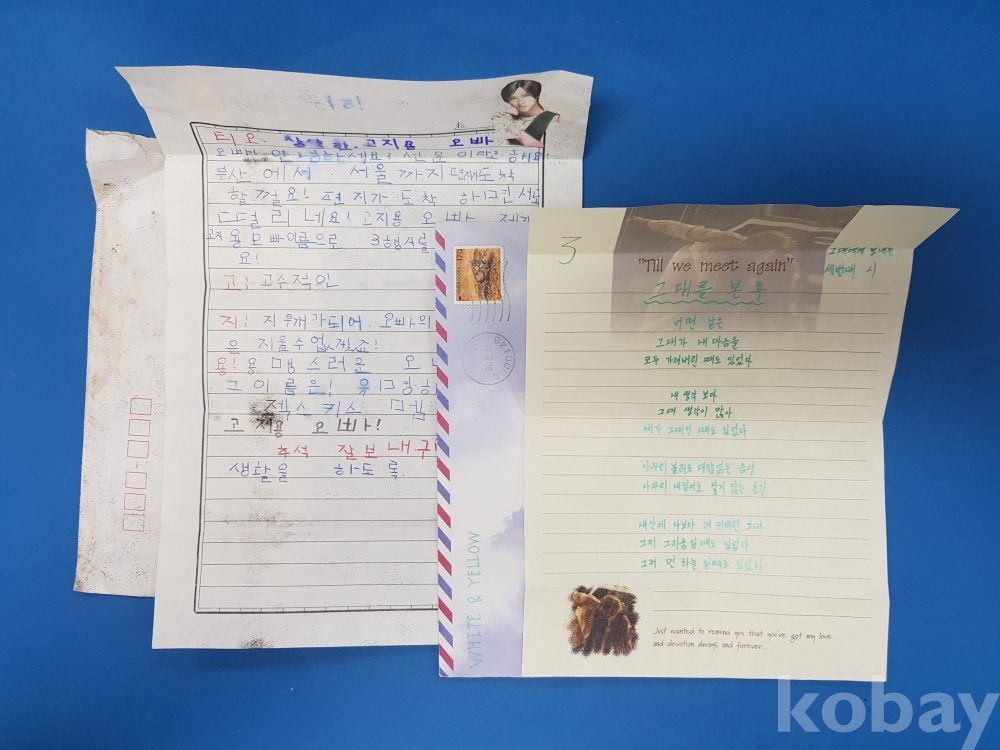 No.
티오. 창불한. 고지용 오빠
부산 에서. 서울 까지 편지도착
할 껄요! 편지가 도착 하려면 서도
고지용 오빠
고지용오빠이름으로 3행시를
요!
고! 고수적인
지! 지우개가되어. 오빠의
은 지울수 업겠죠!
용! 용맹스러운 오
그 이름은!
젝스키스 멤
고지용 오빠!
추석 잘보내구
생활을 하도록.
170
WHITE & YELLOW
3
"Till we meet again"
그대에게 보내는
세번째 시
그대를 본 후
어떤 날은
그대가 내 마음을
모두 가져버린 때도 있었다
내 생각 보다
그대 생각이 많아
내가 그대인 때도 있었다
아무리 불러도 대답없는 음성
아무리 내밀어도 잡지 않는 손길
내안에 나보다 더 커버린 그대
그저 그리움일때도 있었다
그저 먼 하늘 일때도 있었다
Just wanted to remind you that you've got my love
and devotion always and forever...
kobay